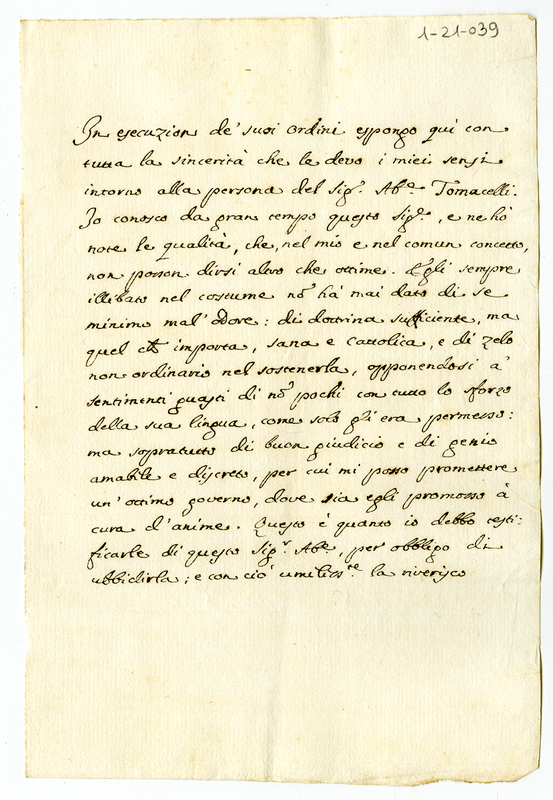 1-21-039
In esecuzion de' suoi ordini espongo qui con
tutta la sincerità che le devo i miei sensi
intorno alla persona del Sig.r Ab.e Tomacelli.
Io conosco da gran tempo questo Sig.e, e ne hò
note le qualità, che, nel mio e nel comun concetto,
non posson dirsi altro che ottime. Egli sempre
illibato nel costume nõ hà mai dato di se
minimo mal' odore: di dottrina sufficiente, ma
quel ch̃ importa, sana e Cattolica, e di zelo
non ordinario nel sostenerla, opponendosi a'
sentimenti guasti di nõ pochi con tutto lo sforzo
della sua lingua, come solo gli era permesso:
ma sopratutto di buon giudicio e di genio
amabile e discreto, per cui mi posso promettere
un' ottimo governo, dove sia egli promosso à
cura d'anime. Questo è quanto io debbo testi:
ficarle di questo Sig.r Ab.e, per obbligo di
ubbidirla; e con ciò umiliss.te la riverisco